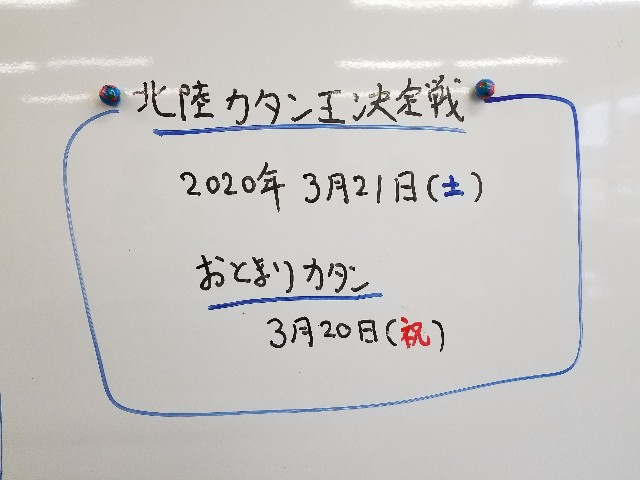 北陸カタン王決定戦
2020年 3月21日(土)
おとまりカタン
3月20日(祝)